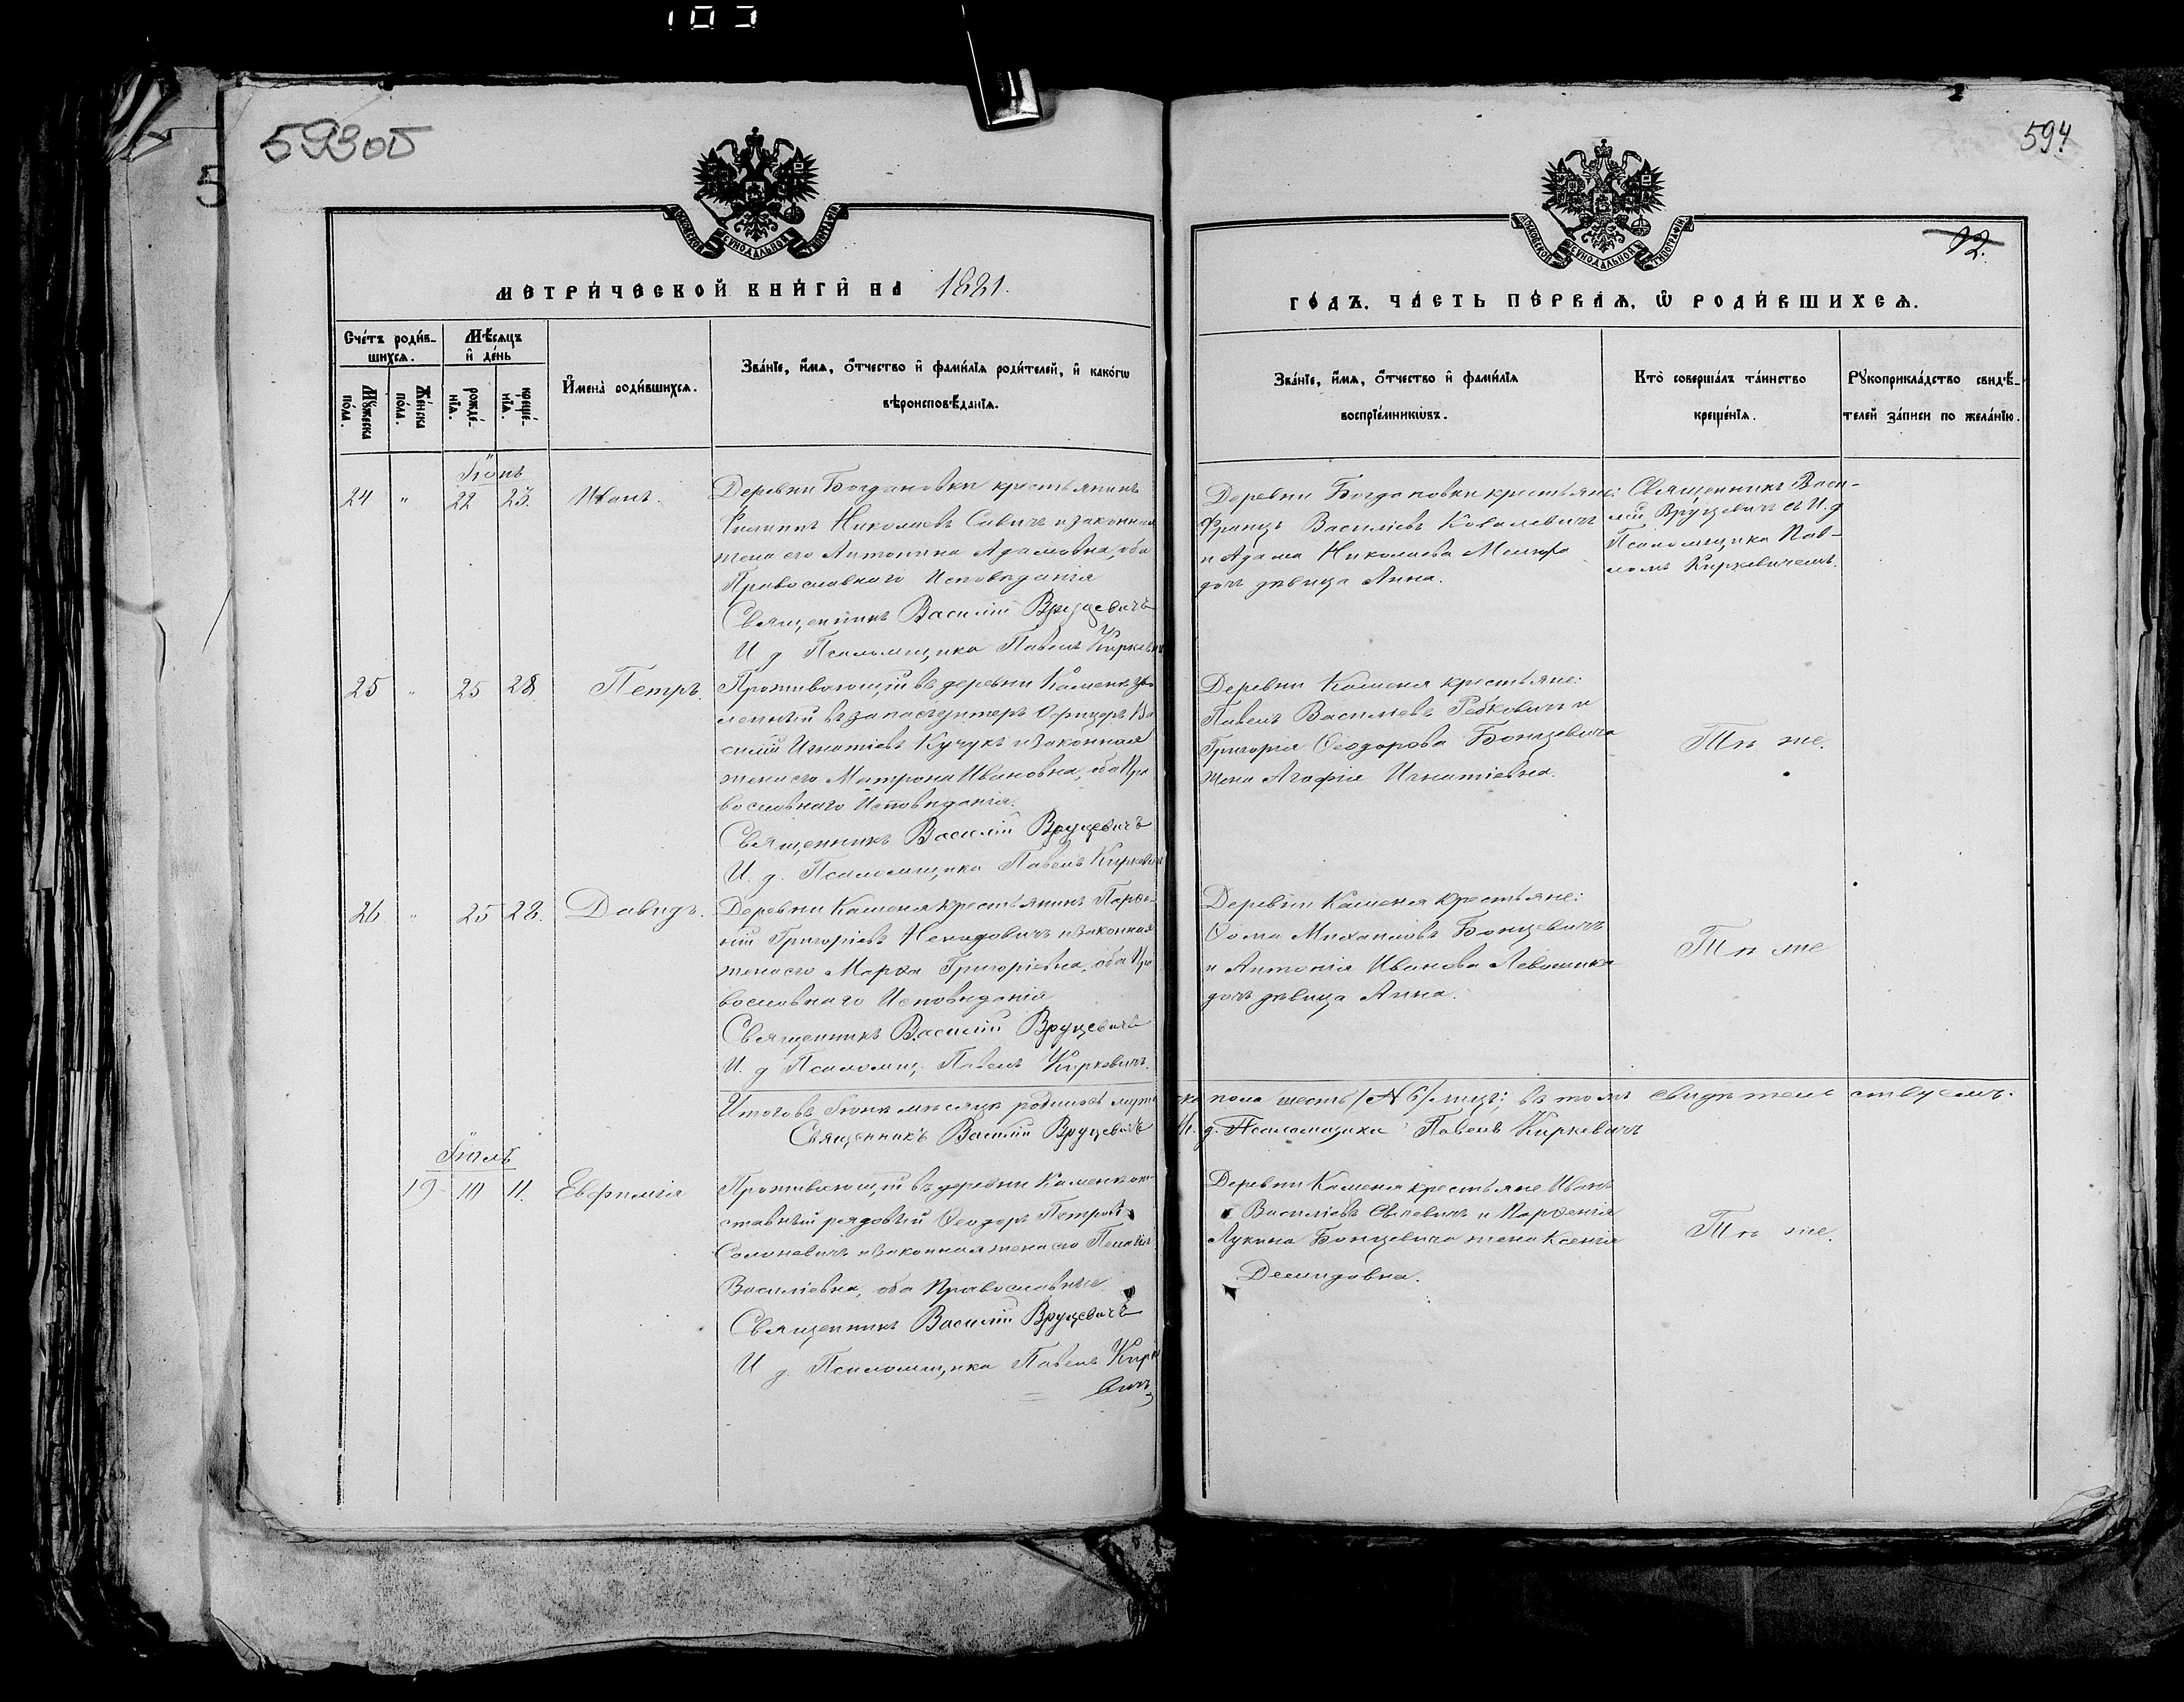 593об
594
12.
МОСКОВСКОЙ СѴНОДАЛЬНОЙ ТИПОГРАФІИ
МОСКОВСКОЙ СѴНОДАЛЬНОЙ ТИПОГРАФІИ
МЕТРИ́ЧЕСКОЙ КНИ́ГИ НА 1881.
ГО́ДЪ, ЧА́СТЬ ПЕ́РВАЯ, Ѡ РОДИ́ВШИХСѦ.
Сче́тъ роди́в-
шихсѧ.
Мѣ́сѧцъ
и де́нь
Му́жеска
по́ла.
Же́нска
по́ла.
рожде́-
нїѧ.
креще́-
нїѧ.
Имена̀ роди́вшихсѧ.
Зва́нїе, и́мѧ, о́тчество и фами́лїѧ роди́телей, и како́гѡ
вѣроисповѣ́данїѧ.
Зва́нїе, и́мѧ, о́тчество и фами́лїѧ
воспрїе́мникѡвъ.
Кто̀ соверша́лъ та́инство
креще́нїѧ.
Рꙋкоприкла́дство свидѣ́-
телей за́писи по жела́нїю.
Іюнь
24 " 22 25. Иванъ.
Деревни Богдановки крестьянинъ
Филиппъ Николаевъ Савичъ и законная
жена его Антонина Адамовна, оба
Православнаго Исповѣданія
Священникъ Василій Вруцевичъ
И д Псаломщика Павелъ Киркевич
Деревни Богдановки крестьяне:
Францъ Василіевъ Ковалевичъ
и Адама Николаева
дочь дѣвица Анна.
Священникъ Васи-
лій Вруцевичъ съ И. д
Псаломщика Пав-
ломъ Киркевичемъ.
25 " 25 28 Петръ.
Проживающій въ деревни Каменкѣ уво
ленный въ запасъ унтеръ Офицеръ Ва
силій Игнатіевъ Кучукъ и законная
жена его Матрона Ивановна, оба Пра
вославнаго Исповѣданія.
Священникъ Василій Вруцевичъ
И. д. Псаломщика Павелъ Киркевич
Деревни Каменя крестьяне:
Павелъ Василіевъ Рабковичъ и
Григорія Ѳеодорова Бонцевича
жена Агафія Игнатіевна.
Тѣ же.
26 " 25 28. Давидъ.
Деревни Каменя крестьянинъ Парѳе-
ній Григоріевъ Ненадовичъ и законная
жена его Марѳа Григоріевна, оба Пра
вославнаго Исповѣданія
Священникъ Василій Вруцевичъ
И. д Псаломщ. Павелъ Киркевичъ.
Деревни Каменя крестьяне:
Ѳома Михаиловъ Бонцевичъ
и Антонія Иванова Левошика
дочь дѣвица Анна.
Тѣ же
Итого въ Іюнѣ мѣсяцѣ родилось муже
ска пола шесть /№ 6/ лицъ; въ томъ свидѣтельствуемъ.
Священникъ Василій Вруцевичъ И. д. Псаломщика Павелъ Киркевичъ
Іюль
19 10 11. Евфимія
Проживающій въ деревни Каменкѣ от-
ставный рядовый Ѳеодоръ Петровъ
Солоневичъ и законная жена его Пелагія
Василіевна, оба Православные
Священникъ Василій Вруцевичъ
И д. Псаломщика Павелъ Кирке
вичъ
Деревни Каменя крестьяне Иванъ
Василіевъ и Парѳенія
Лукина Бонцевича жена Ксенія
Демидовна.
Тѣ же.